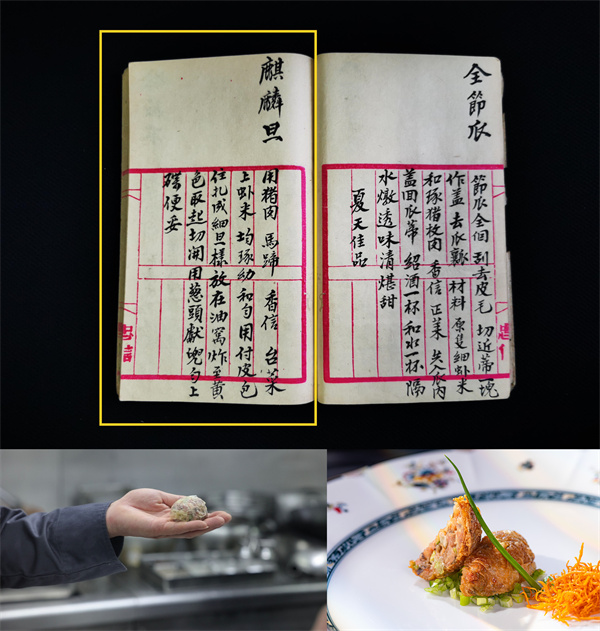 全節瓜
節瓜全個 刮去皮毛 切近蒂塊
作盖 去瓜瓤 材料 原隻細虾米
和琢猪枚肉 香信 正菜 共入瓜内
盖回瓜蒂 绍酒一杯 和水一杯 隔
水燉透味清堪甜
夏天佳品
麒麟旦
用猪肉 馬蹄 香信 台菜
上虾米 均琢幼 和匀用付皮包
住扎成細旦樣放在油窩炸至黄
色取起切開用葱頭獻兜匀上
碟便妥
忠信